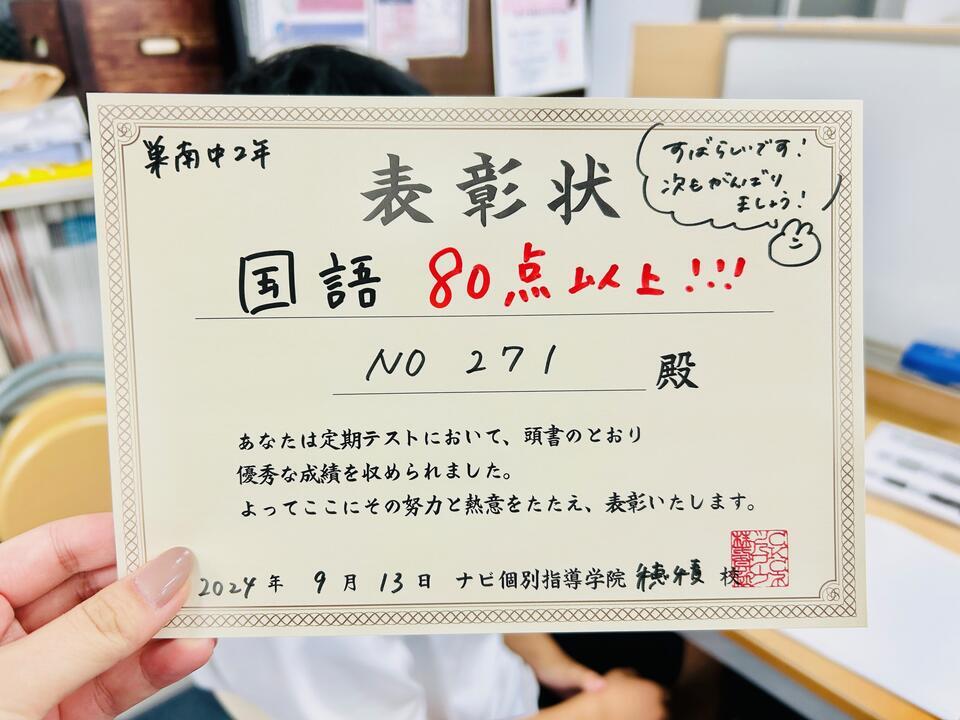 巣南中2年
表彰状
すばらしいです!
次もがんばり
ましょう!
国語 80点以上!!!
NO 271 殿
あなたは定期テストにおいて、頭書のとおり
優秀な成績を収められました。
よってここにその努力と熱意をたたえ、表彰いたします。
2024年 9月 13日 ナビ個別指導学院 穂積 校